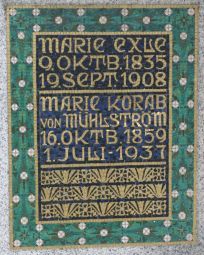 MARIE EXLE
9. OKTB. 1835
19. SEPT. 1908
MARIE KORAB
VON MÜHLSTRÖM
16. OKTB. 1859
1. JULI · 1937